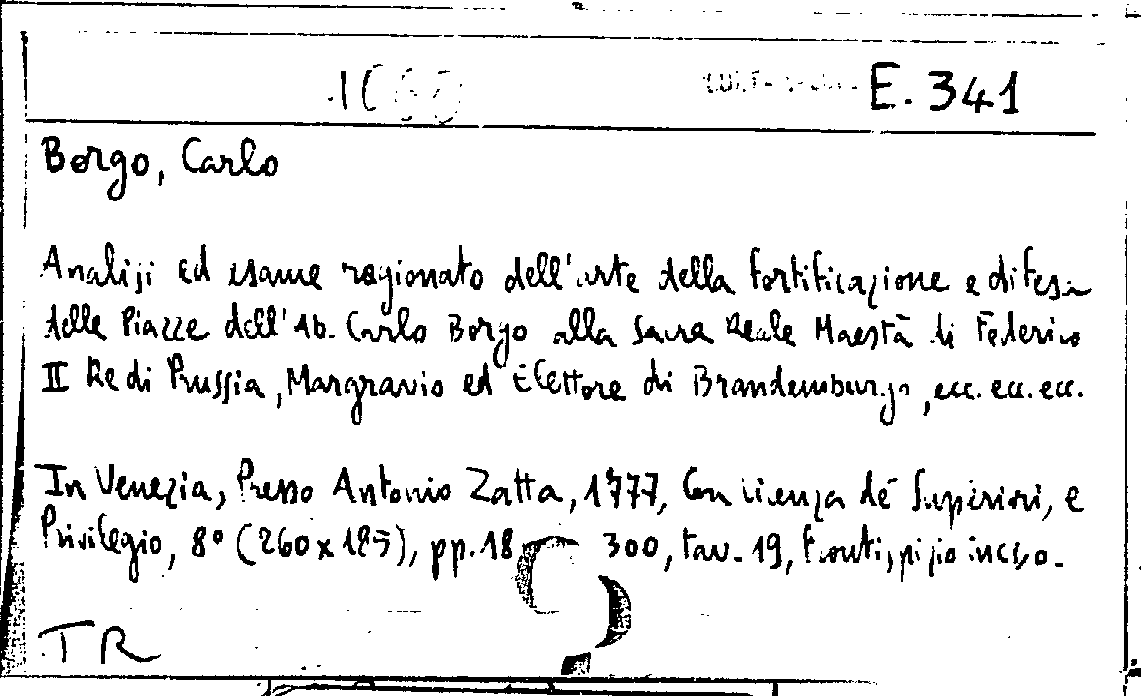 E. 341
Borgo, Carlo
Analisi ed esame ragionato dell'arte della fortificazione e difesa
delle Piazze dell'Ab. Carlo Borgo alla Sacra Reale Maestà di Federico
II Re di Prussia, Margravio ed Elettore di Brandemburgo, ecc. ecc. ecc.
In Venezia, Presso Antonio Zatta, 1777, Con licenza de' Superiori, e
Privilegio, 8° (260x185), pp. 18 300, tav. 19, Frontispizio inciso.
TR